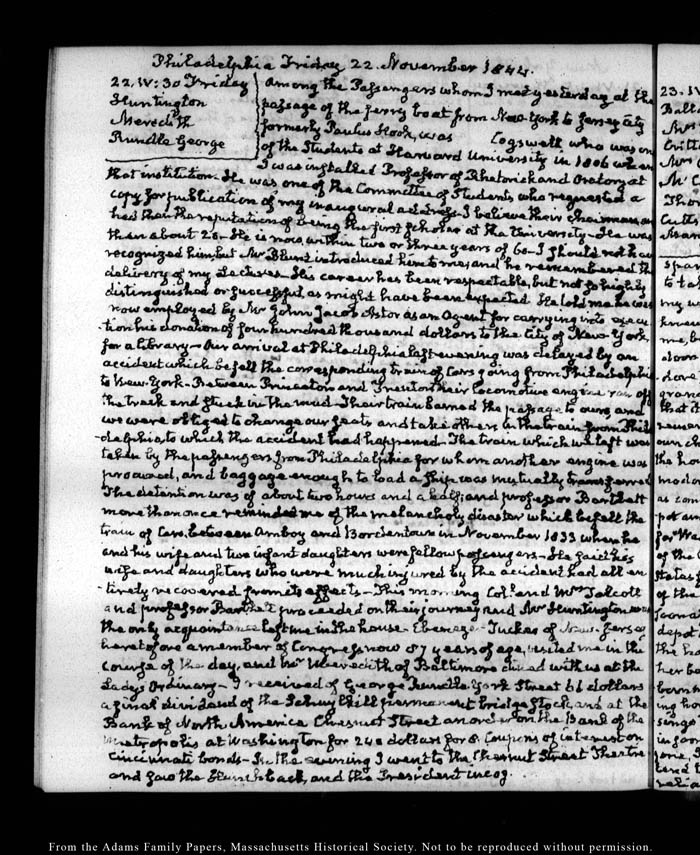 Philadelphia Friday 22. November 1844.
22. IV:30 Friday
Huntington
Meredith
Rundle George
Among the Passengers whom I met yesterday at the
passage of the ferry boat from New-York to Jersey City
formerly Paulus Hook, was Cogswell who was on
of the Students at Harvard University in 1806 when
I was installed Professor of Rhetoric and Oratory at
that institution. He was one of the Committee of Students who requested a
copy for publication of my inaugural address. I believe their chairman, an
had then the reputation of being the first scholar at the University. He was
then about 20. He is now within two or three years of 60. I should not ha
recognized him, but Mr Blunt introduced him to me, and he remembered th
delivery of my Lectures. His career has been respectable, but not so highly
distinguished or successful as might have been expected. He told me he was
now employed by Mr John Jacob Astor as an Agent for carrying into execu
tion his donation of four hundred thousand dollars to the City of New-York,
for a library. Our arrival at Philadelphia last evening was delayed by an
accident which befell the corresponding train of Cars going from Philadelphia
to New-York. Between Princeton and Trenton their locomotive engine ran off
the track and stuck in the mud. Their train barred the passage to ours, and
we were obliged to change our seats and take others in the train from Phil
-delphia, to which the accident had happened. The train which we left was
taken by the passengers from Philadelphia for whom another engine was
procured, and baggage enough to load a ship was mutually transferred
The detention was of about two hours and a half, and professor Bartlett
more than once reminded me of the melancholy disaster which befell the
train of Cars, between Amboy and Bordentown in November 1833 when he
and his wife and two infant daughters were fellow passengers. He said his
wife and daughters who were much injured by the accident had all en
-tirely recovered from its effects. This morning Col. and Mrs Talcott
and professor Bartlett proceeded on their journey and Mr Huntington was
the only acquaintance left me in the house. Ebenezer Tucker of New-Jersey
heretofore a member of Congress, now 87 years of age, visited me in the
course of the day, and Mr Meredith of Baltimore dined with us at the
Ladys Ordinary. I received of George Rundle York Street 66 dollars
a final dividend of the Schuylkill permanent bridge stock, and at the
Bank of North America Chesnut Street an order on the Bank of the
Metropolis at Washington for 240 dollars for 8 Coupons of interest on
Cincinnati bonds. In the evening I went to the Chesnut Street Theatre
and saw the Hunchback, and the President incog.
23. IV
From the Adams Family Papers, Massachusetts Historical Society. Not to be reproduced without permission.